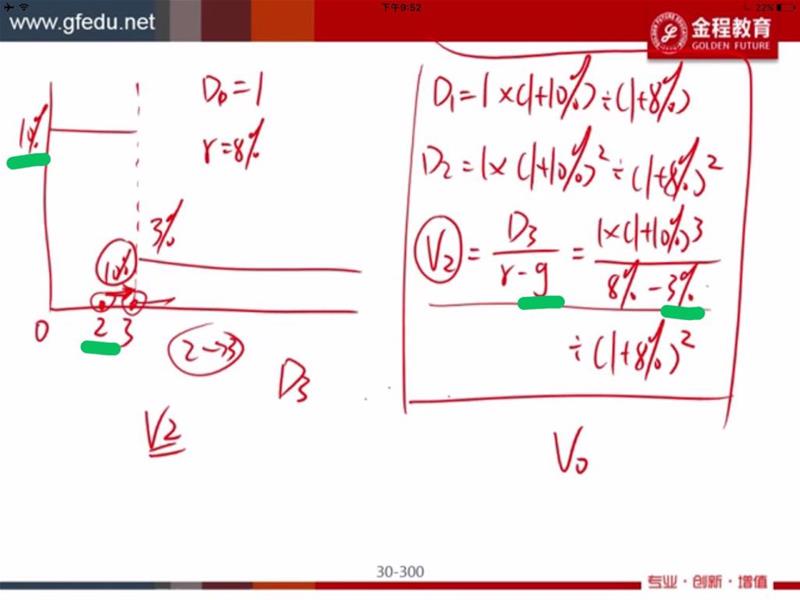 下午9:52
22%
www.gfedu.net
金程教育
GOLDEN FUTURE
D₀=1
r=8%
10%
3%
10%
0
2
3
2→3
D₃
V2
D₁=1×(1+10%)÷(1+8%)
D₂=1×(1+10%)²÷(1+8%)²
V₂ = D₃ / r-g = 1×(1+10%)3 / 8%-3%
÷(1+8%)²
V₀
30-300
专业·创新·增值